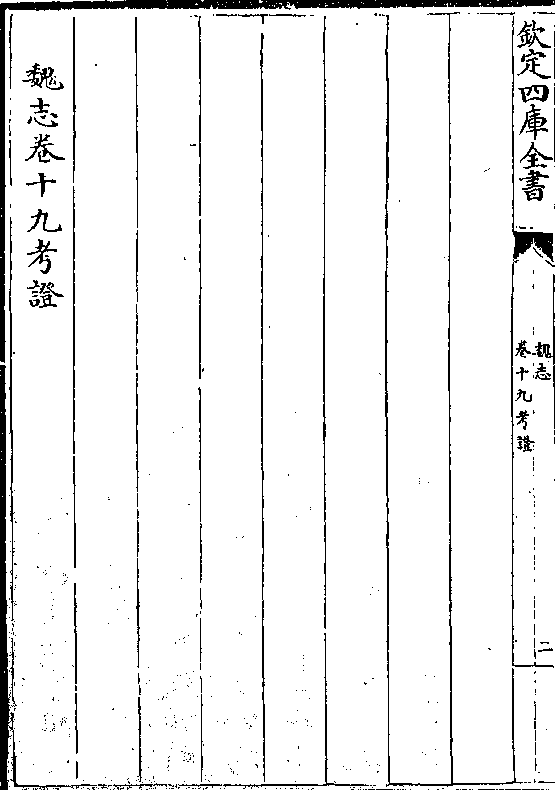 欽定四庫全書
魏志
卷十九考證
二
魏志卷十九考證